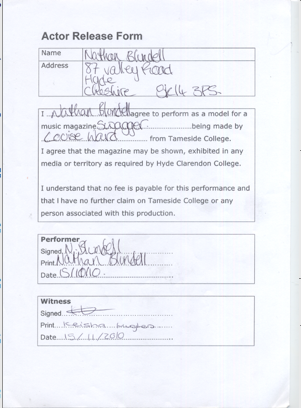 Actor Release Form
Name Nathan Blundell
Address 87 Valley Road
Hyde
Cheshire SK14 3FS.
I Nathan Blundell agree to perform as a model for a
music magazine Swagger being made by
Louise Ward from Tameside College.
I agree that the magazine may be shown, exhibited in any
media or territory as required by Hyde Clarendon College.
I understand that no fee is payable for this performance and
that I have no further claim on Tameside College or any
person associated with this production.
Performer
Signed N. Blundell
Print Nathan Blundell
Date
Witness
Signed
Print Hughes
Date 15/11/2010